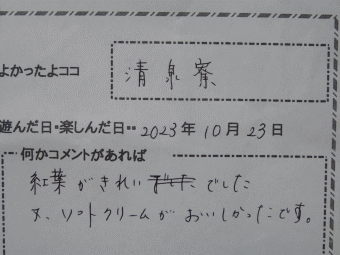 よかったよココ 清泉寮
遊んだ日・楽しんだ日・・ 2023年10月23日
何かコメントがあれば
紅葉がきれい でした
又、ソフトクリームがおいしかったです。